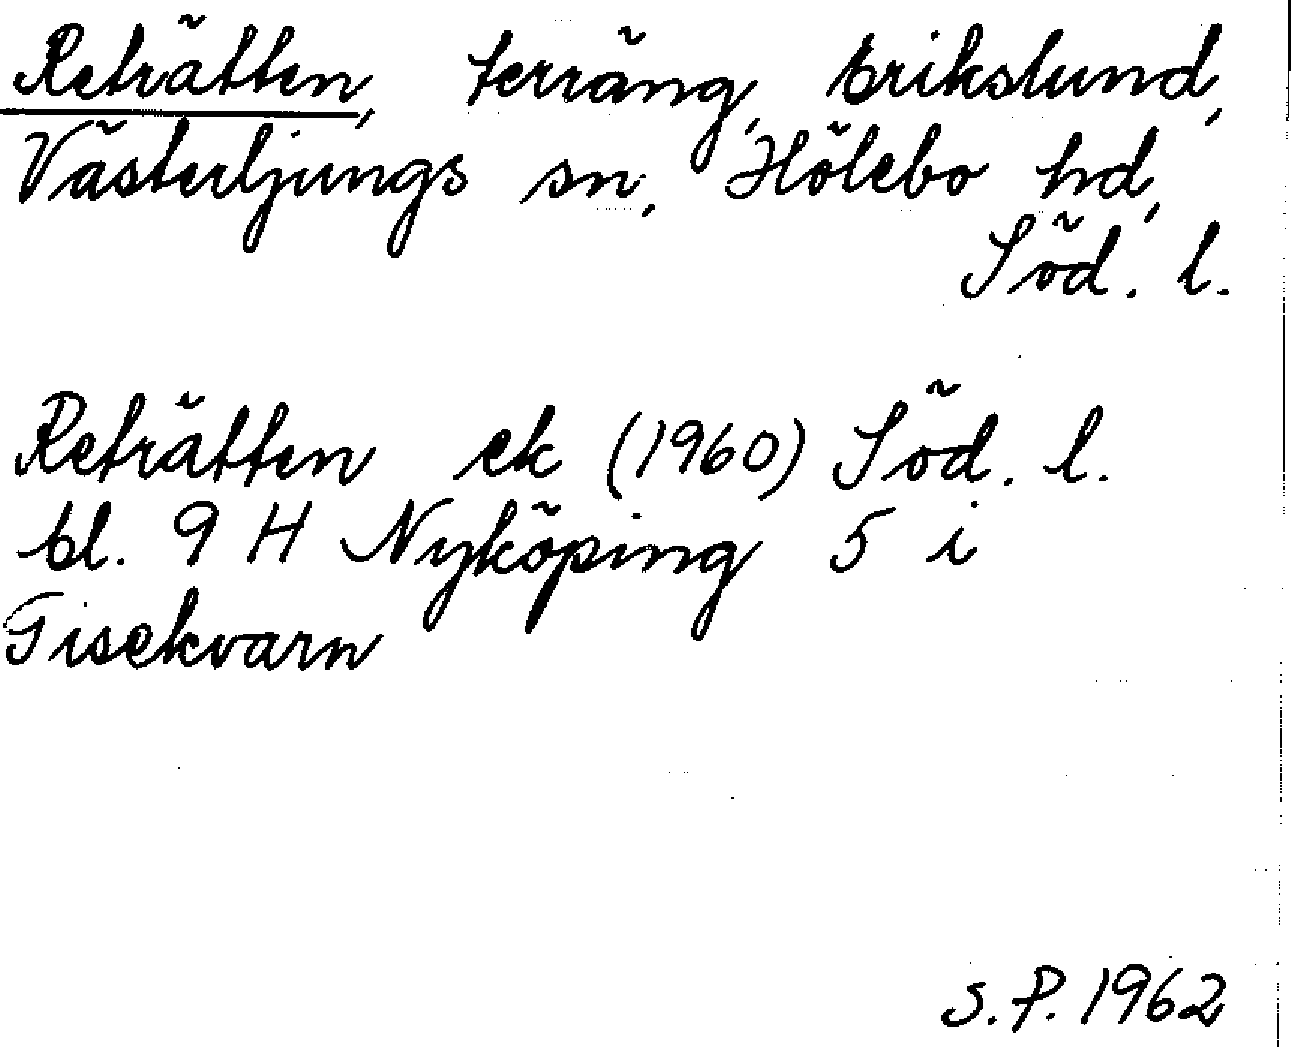 Reträtten, terräng, Erikslund,
Västerljungs sn, Hölebo hd,
Söd. l.
Reträtten ek (1960) Söd. l.
bl. 9 H Nyköping 5 i
Tisekvarn
S.P. 1962